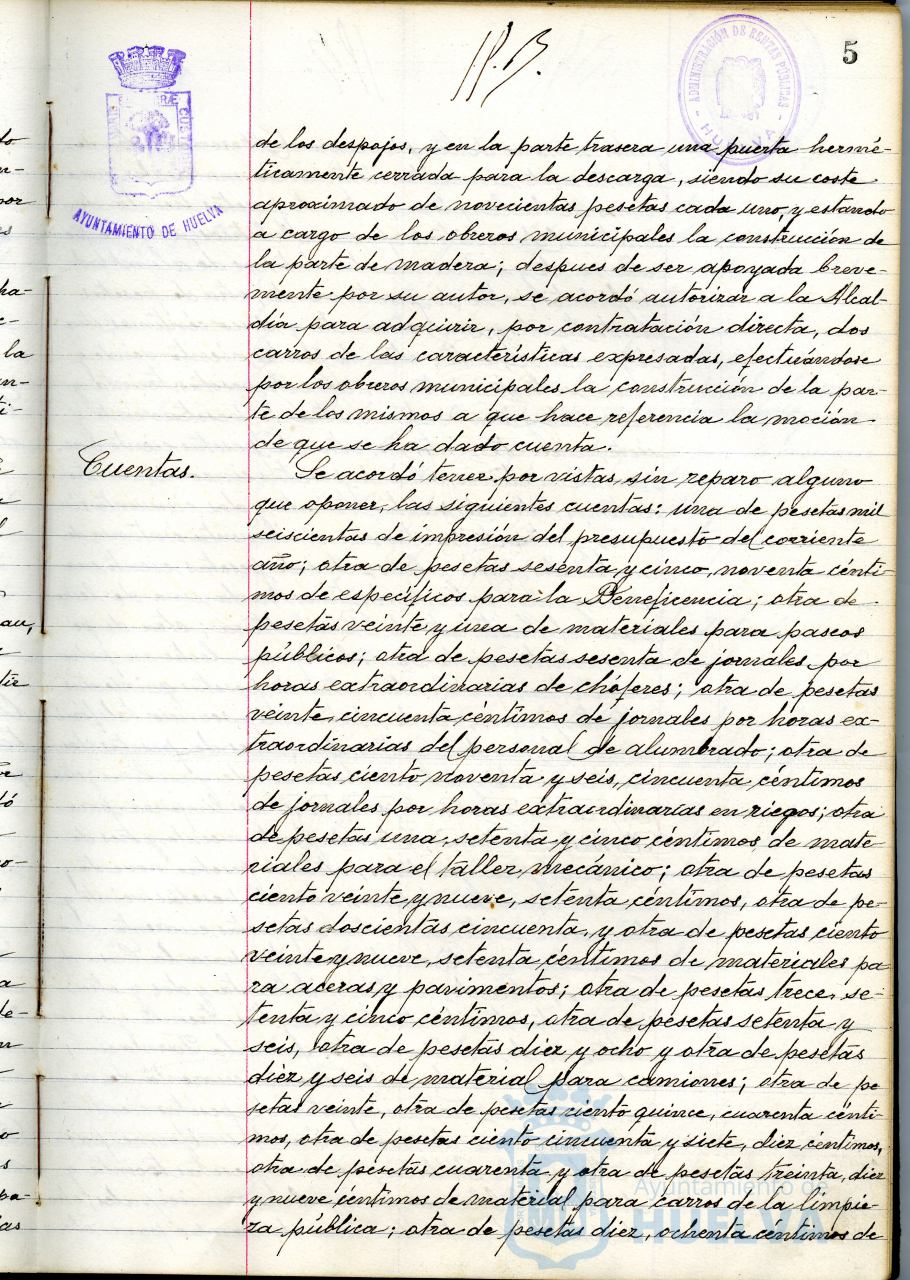 5
ADMINISTRACIÓN DE RENTAS PÚBLICAS
HUELVA
AYUNTAMIENTO DE HUELVA
de los despojos, y en la parte trasera una puerta hermé-
ticamente cerrada para la descarga, siendo su coste
aproximado de novecientas pesetas cada uno, y estando
a cargo de los obreros municipales la construcción de
la parte de madera; despues de ser apoyada breve-
mente por su autor, se acordó autorizar a la Alcal-
día para adquirir, por contratación directa, dos
carros de las características expresadas, efectuándose
por los obreros municipales la construcción de la par-
te de los mismos a que hace referencia la moción
de que se ha dado cuenta.
Cuentas.
Se acordó tener por vistas, sin reparo alguno
que oponer, las siguientes cuentas: una de pesetas mil
seiscientas de impresión del presupuesto del corriente
año; otra de pesetas sesenta y cinco, noventa cénti-
mos de específicos para la Beneficencia; otra de
pesetas veinte y una de materiales para paseos
públicos; otra de pesetas sesenta de jornales por
horas extraordinarias de chóferes; otra de pesetas
veinte, cincuenta céntimos de jornales por horas ex-
traordinarias del personal de alumbrado; otra de
pesetas ciento noventa y seis, cincuenta céntimos
de jornales por horas extraordinarias en riegos; otra
de pesetas una, setenta y cinco céntimos de mate-
riales para el taller mecánico; otra de pesetas
ciento veinte y nueve, setenta céntimos, otra de pe-
setas doscientas cincuenta, y otra de pesetas ciento
veinte y nueve, setenta céntimos de materiales pa-
ra aceras y pavimentos; otra de pesetas trece, se-
tenta y cinco céntimos, otra de pesetas setenta y
seis, otra de pesetas diez y ocho y otra de pesetas
diez y seis de material para camiones; otra de pe
setas veinte, otra de pesetas ciento quince, cuarenta cénti-
mos, otra de pesetas ciento cincuenta y siete, diez céntimos,
otra de pesetas cuarenta y otra de pesetas treinta, diez
y nueve céntimos de material para carros de la limpie-
za pública; otra de pesetas diez, ochenta céntimos de
Ayuntamiento de
HUELVA